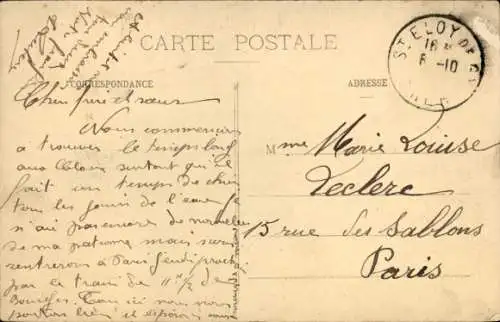 CARTE POSTALE
CORRESPONDANCE
ADRESSE
ST ELOY DE GY
16
6 -10
CHER
Cher frère et sœur
Nous commençons
à trouver le temps long
aux Colais surtout qu'il
fait un temps de chien
tous les jours de l'eau. Je
n'ai pas encore de nouvelles
de ma patronne mais nous
rentrerons à Paris jeudi prochain
par le train de 11 h 1/2 de
Bourges. Tous ici nous nous
portons bien et espérons
Mme Marie Louise
Leclerc
15 rue des Sablons
Paris